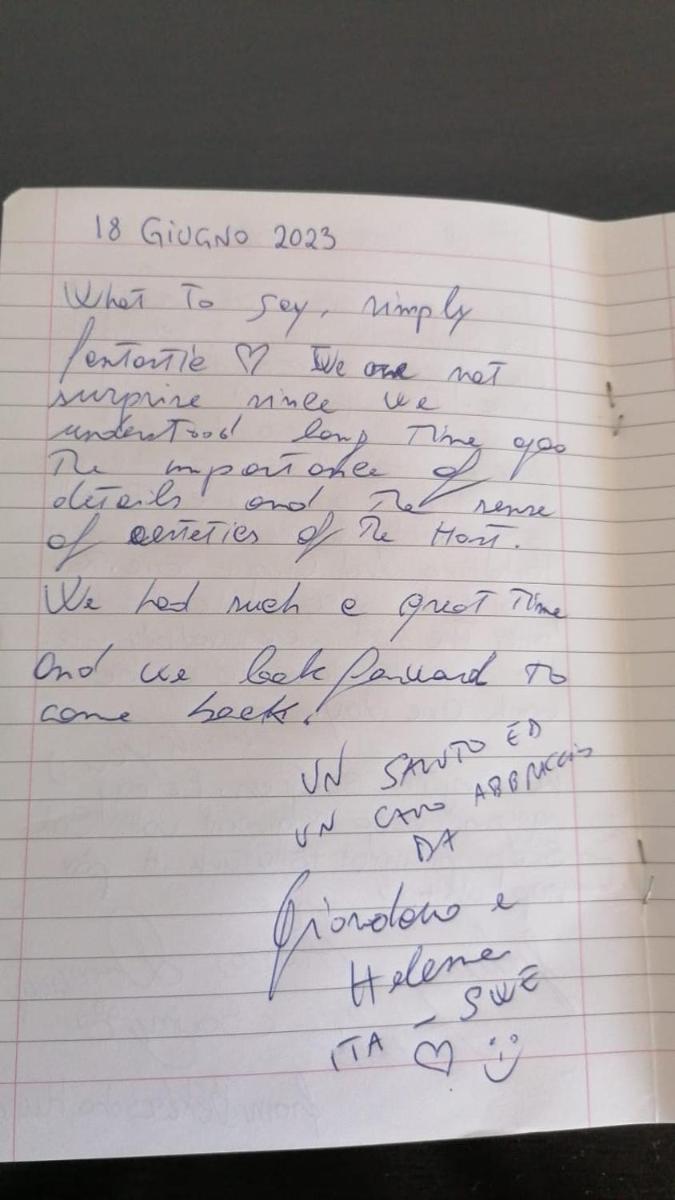 18 GIUGNO 2023
What to say, simply
fantastic ♡ We are not
surprise since we
understood long time ago
the importance of
details and the sense
of estetics of the Host.
We had such a great time
and we look forward to
come back!
UN SALUTO ED
UN CARO ABBRACCIO
DA
Giordano e
Helena
ITA - SWE
♡ :)